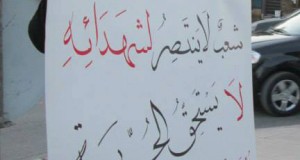 شعبٌ لا ينتصِرُ لشهدائِهِ
لا يستحِقُّ الحُريةَ